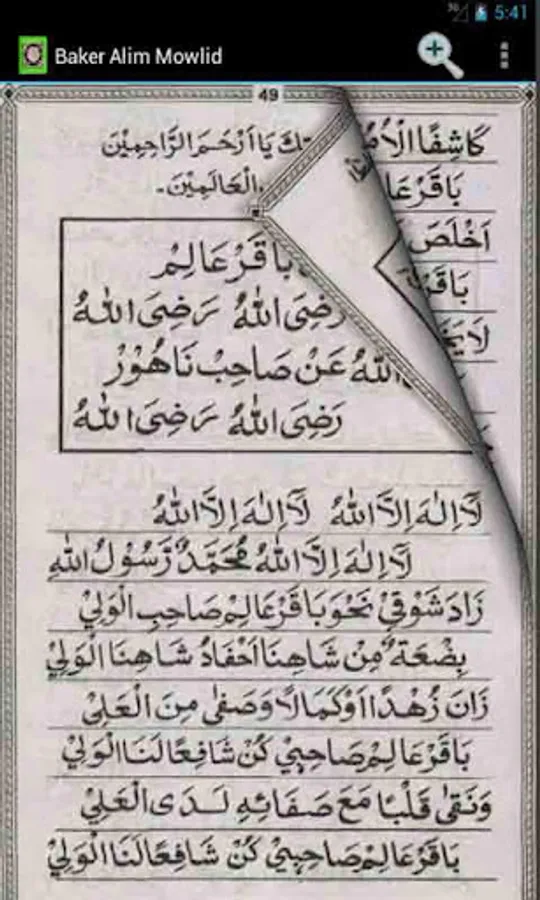 3G 5:41
Baker Alim Mowlid
49
يَا اَرْحَمَ الرَّاحِمِيْنَ
الْعَالَمِيْنَ۔
بَاقَرْعَالِمْ
رَضِىَ اللّٰهُ رَضِىَ اللّٰهُ
اللّٰهُ عَنْ صَاحِبْ نَاهُوْرْ
رَضِىَ اللّٰهُ رَضِىَ اللّٰهُ
لَآ اِلٰهَ اِلَّا اللّٰهُ لَآ اِلٰهَ اِلَّا اللّٰهُ
لَآ اِلٰهَ اِلَّا اللّٰهُ مُحَمَّدٌ رَّسُوْلُ اللّٰهِ
زَادَ شَوْقِيْ نَحْوَ بَاقَرْعَالِمْ صَاحِبِ الْوَلِيْ
بِضْعَةٌ مِنْ شَاهِنَا اَحْفَادُ شَاهِنَا الْوَلِيْ
زَانَ زُهْدًا اَوْ كَمَالًا وَصَفٰى مِنَ الْعَلِيْ
بَاقَرْعَالِمْ صَاحِبِيْ كُنْ شَافِعًا لَنَا الْوَلِيْ
وَنَقٰى قَلْبًا مَعَ صَفَائِهِ لَدَى الْعَلِيْ
بَاقَرْعَالِمْ صَاحِبِيْ كُنْ شَافِعًا لَنَا الْوَلِيْ
كَاشِفًا
بَاقَرْعَا
اَخْلَصَ